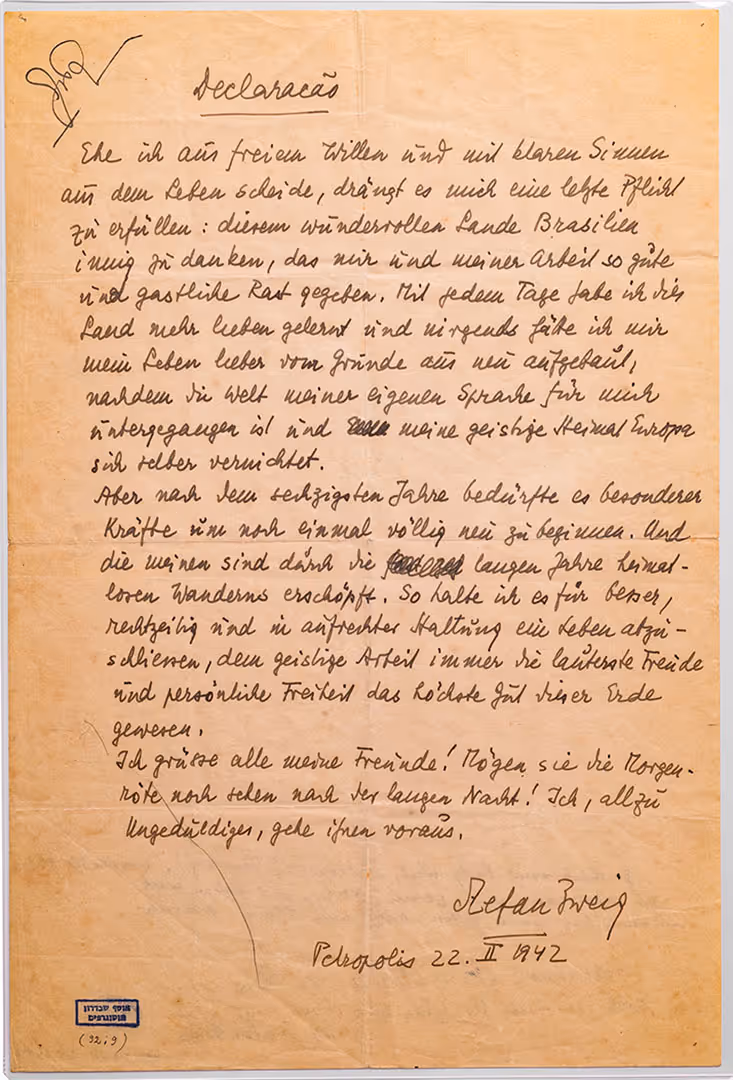 Declaracão
Ehe ich aus freiem Willen und mit klaren Sinnen
aus dem Leben scheide, drängt es mich eine letzte Pflicht
zu erfüllen : diesem wundervollen Lande Brasilien
innig zu danken, das mir und meiner Arbeit so gute
und gastliche Rast gegeben. Mit jedem Tage habe ich dies
Land mehr lieben gelernt und nirgends hätte ich mir
mein Leben lieber vom Grunde aus neu aufgebaut,
nachdem die Welt meiner eigenen Sprache für mich
untergegangen ist und meine geistige Heimat Europa
sich selber vernichtet.
Aber nach dem sechzigsten Jahre bedürfte es besonderer
Kräfte um noch einmal völlig neu zu beginnen. Und
die meinen sind durch die langen Jahre heimat-
losen Wanderns erschöpft. So halte ich es für besser,
rechtzeitig und in aufrechter Haltung ein Leben abzu-
schliessen, dem geistige Arbeit immer die lauterste Freude
und persönliche Freiheit das höchste Gut dieser Erde
gewesen.
Ich grüsse alle meine Freunde! Mögen sie die Morgen-
röte noch sehen nach der langen Nacht! Ich, allzu
Ungeduldiger, gehe ihnen voraus.
Stefan Zweig
Petropolis 22. II 1942
אוסף שבדרון
אוטוגרפים